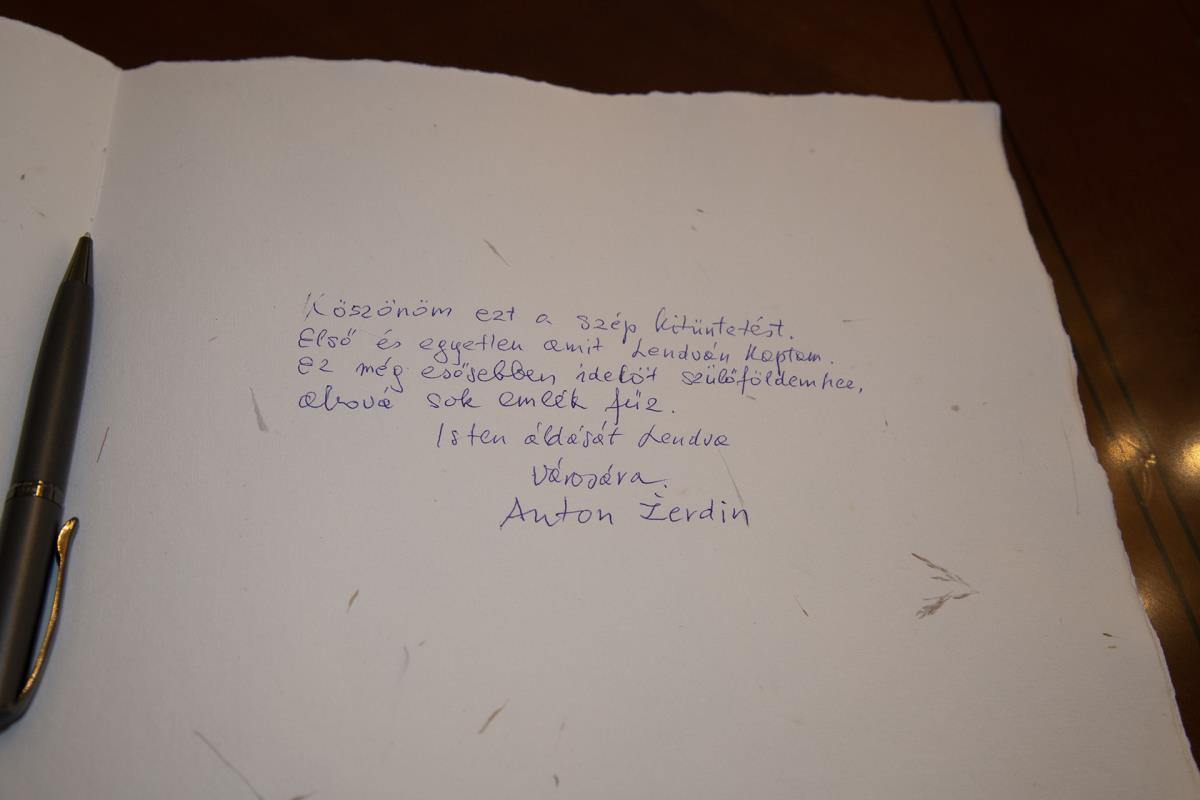 Köszönöm ezt a szép kitüntetést.
Első és egyetlen amit Lendván kaptam.
Ez még esősebben idekőt szülőföldemhee,
ahová sok emlék fűz.
Isten áldását Lendva
városára.
Anton Žerdin